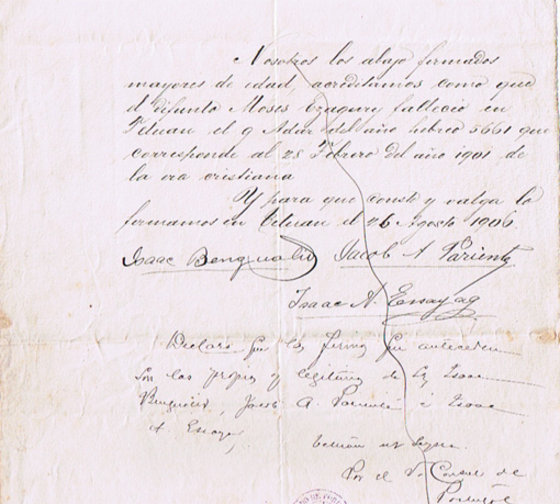 Nosotros los abajo firmados
mayores de edad, acreditamos como que
el difunto Moses Ozagury falleció en
Tetuan el 9 Adar del año hebreo 5661 que
corresponde al 28 Febrero del año 1901 de
la era cristiana
Y para que conste y valga lo
firmamos en Tetuan el 26 Agosto 1906
Isaac Bengualid Jacob A Pariente
Isaac A. Essayag
Declaro que las firmas que anteceden
son las propias y legitimas de Isaac
Jacob A. Pariente é Isaac
A. Essayag
Tetuán
Por el V. Consul de
Portugal